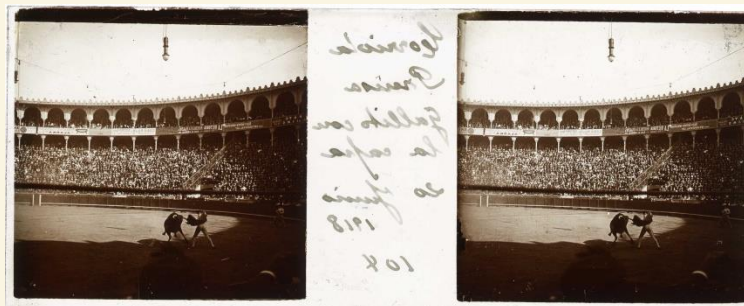 Corrida
Prensa
Gallito con
la capa
20 Junio
1918
104